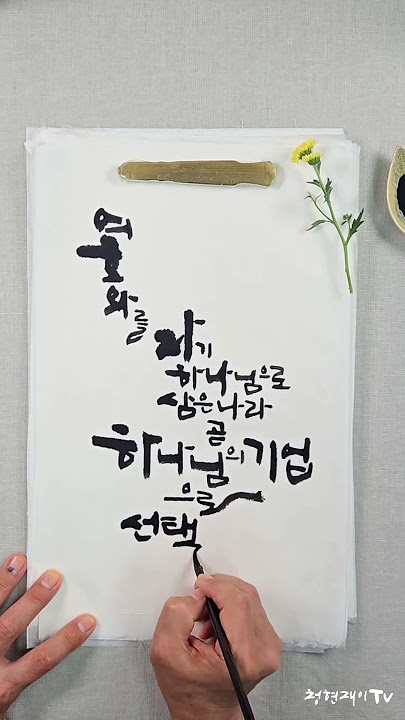 여호와를
자기
하나님으로
삼은 나라
곧
하나님의 기업
으로
선택
청현재이TV